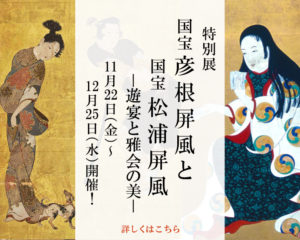 特別展
国宝 彦根屏風と
国宝 松浦屏風
―遊宴と雅会の美―
11月22日(金)～
12月25日(水)開催！
詳しくはこちら